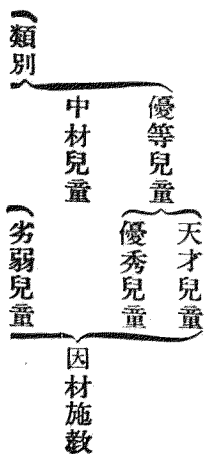 （類別
優等兒童
天才兒童
優秀兒童
中材兒童
（劣弱兒童
因材施敎